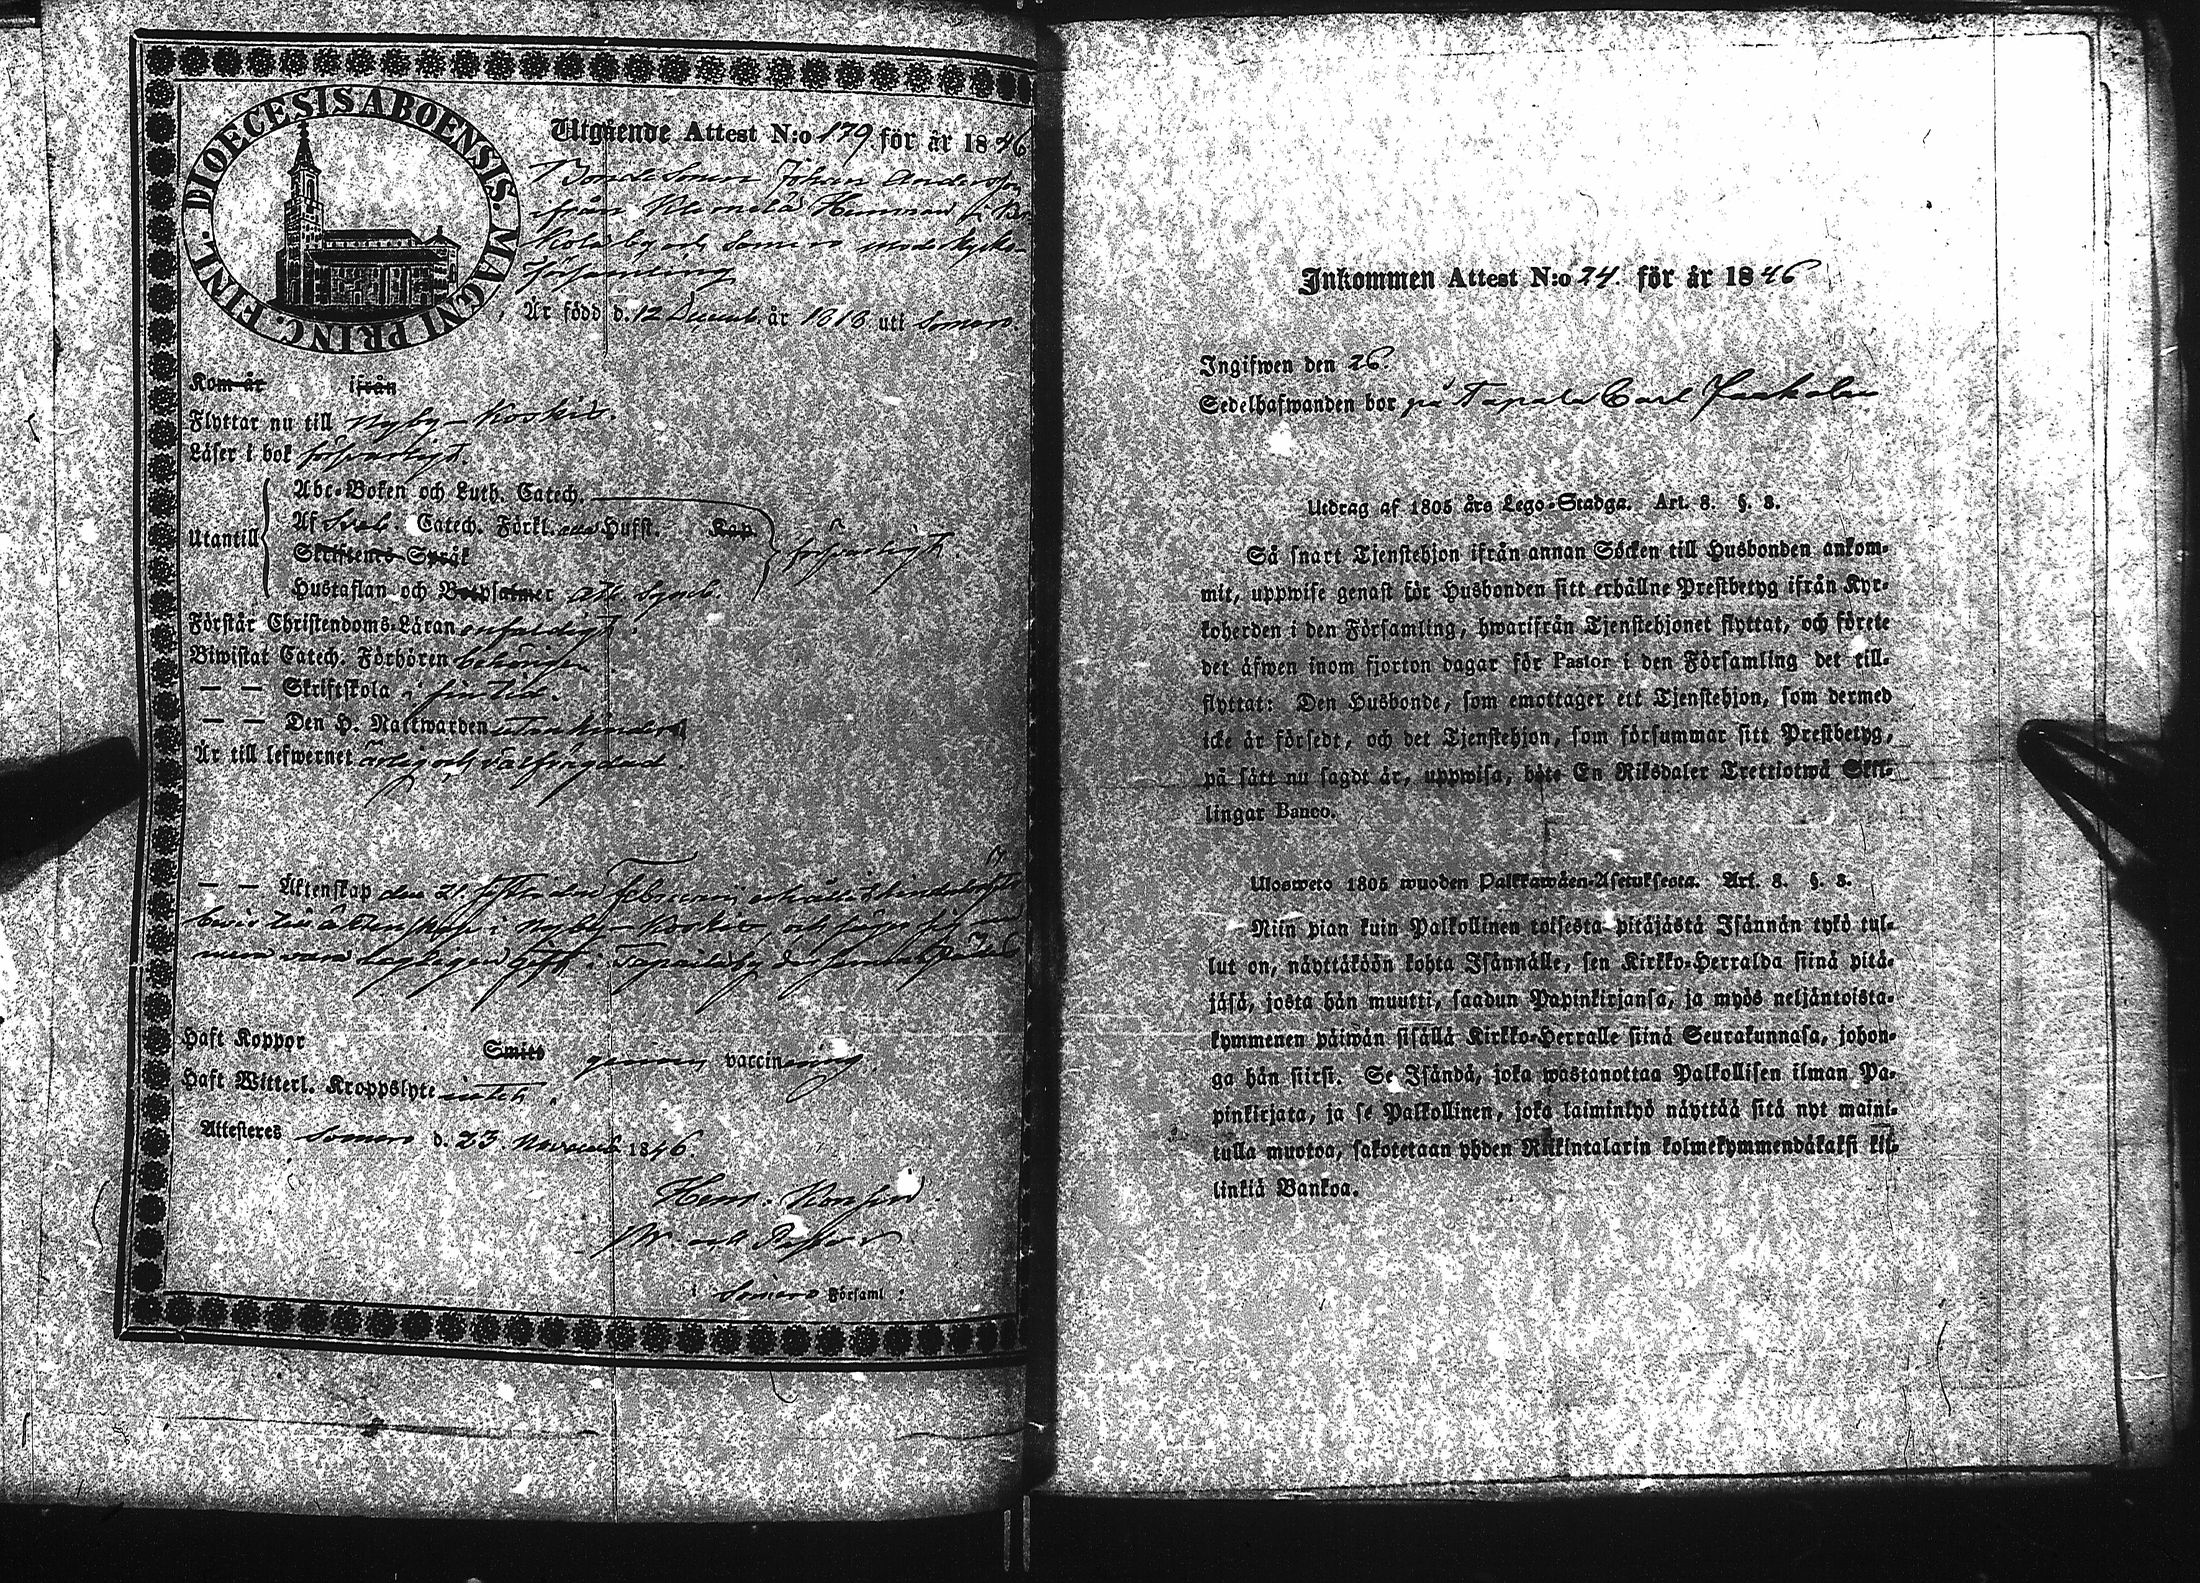 DIOECESIS ABOENSIS. MAGNI PRINC. FINL.
Utgående Attest N:o 179 för år 1846
Bonde Sonen Johan Andersson
ifrån Klemelä Hemman i
by och Somero moderkyrko
församling
Är född d. 12 Decemb. år 1818 uti Somero.
Kom år ifrån
Flyttar nu till Nyby-Koskis.
Läser i bok försvarligt.
Abc-Boken och Luth. Catech.
Utantill Af Sveb. Catech. Förkl. Hufst. Kap. försvarligt.
Skriftenes Språk
Hustaflan och Botpsalmer Ath. Symb.
Förstår Christendoms-Läran enfaldigt.
Biwistat Catech. Förhören behörigen
— — Skriftskola i sin tid.
— — Den H. Nattwarden utan hinder
Är till lefwernet ärlig och välfrägdad.
— — Äktenskap den 21 Februarii
bevis till äktenskap i Nyby-Koskis, och säger sig
vara lagligen gift i Tapala by
Haft Koppor Smitt genom vaccinering.
Haft Witterl. Kroppslyte intet.
Attesteras Somero d. 23 Novemb. 1846.
Henr:
i Somero Församl:
Inkommen Attest N:o 24. för år 1846
Ingifwen den 26.
Sedelhafwanden bor på Tapala Carl
Utdrag af 1805 års Lego-Stadga. Art. 8. §. 8.
Så snart Tjenstehjon ifrån annan Söcken till Husbonden ankom-
mit, uppwise genast för Husbonden sitt erhållne Prestbetyg ifrån Kyr-
koherden i den Församling, hwarifrån Tjenstehjonet flyttat, och förete
det åfwen inom fjorton dagar för Pastor i den Församling det till-
flyttat: Den Husbonde, som emottager ett Tjenstehjon, som dermed
icke är försedt, och det Tjenstehjon, som försummar sitt Prestbetyg,
på sätt nu sagdt är, uppwisa, böte En Riksdaler Trettiotwå Skil-
lingar Banco.
Ulosweto 1805 wuoden Palkkawäen-Asetuksesta. Art. 8. §. 8.
Niin pian kuin Palkollinen toisesta pitäjästä Isännän tykö tul-
lut on, näyttäköön kohta Isännälle, sen Kirkko-Herralda siinä pitä-
jäsä, josta hän muutti, saadun Papinkirjansa, ja myös neljäntoista-
kymmenen päiwän sisällä Kirkko-Herralle siinä Seurakunnasa, johon-
ga hän siirsi. Se Isändä, joka wastanottaa Palkollisen ilman Pa-
pinkirjata, ja se Palkollinen, joka laiminlyö näyttää sitä nyt maini-
tulla muotoa, sakotetaan yhden Riikintalarin kolmekymmendäkaksi kil-
linkiä Bankoa.